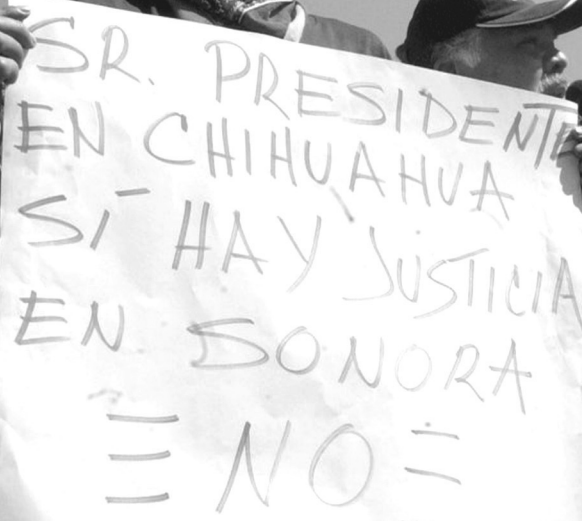 SR. PRESIDENTE
EN CHIHUAHUA
SÍ HAY JUSTICIA
EN SONORA
NO